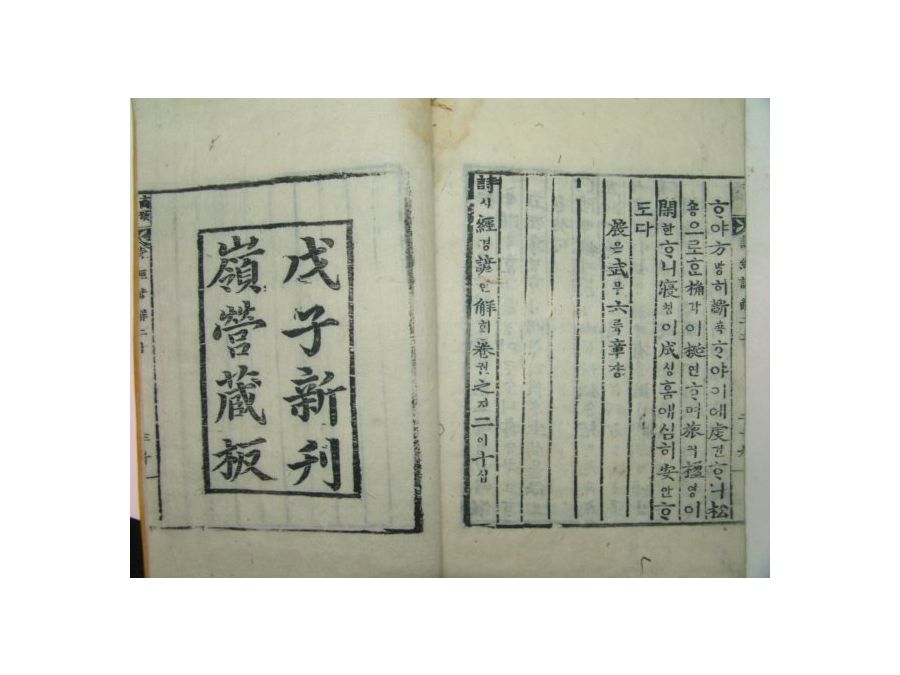 ᄒᆞ야方방히斲쟉ᄒᆞ야이에虔건ᄒᆞ니松
숑으로ᄒᆞᆫ桷각이梃연ᄒᆞ며旅려楹영이
閑한ᄒᆞ니寢침이成셩홈애심히安안ᄒᆞ
도다
殷은武무六륙章쟝
詩시經경諺언解ᄒᆡ卷권之지二이十십
戊子新刊
嶺營藏板